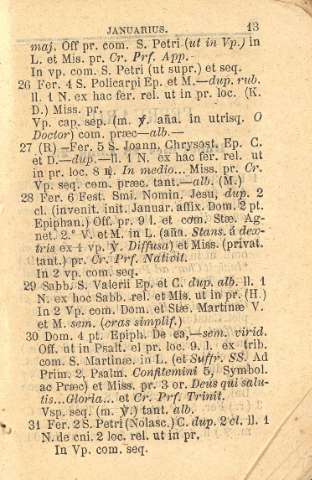 JANUARIUS. 13
maj. Off pr. com. S. Petri (ut in Vp.) in
L. et Mis. pr. Cr. Prf. App.-
In vp. com. S. Petri (ut supr.) et seq.
26 Fer. 4 S. Policarpi Ep. et M.—dup. rub.
ll. 1 N. ex hac fer. rel. ut in pr. loc. (K.
D.) Miss. pr.
Vp. cap. sep. (m. ℣. aña. in utrisq. O
Doctor) com. præc—alb.—
27 (R) —Fer. 5 S. Joann, Chrysost. Ep. C.
et D.—dup.—ll. 1 N. ex hac fer. rel. ut
in pr. loc. 8 ℟. In medio... Miss. pr. Cr.
Vp. seq. com. præc. tant.—alb. (M.)
28 Fer. 6 Fest. Smi. Nomin. Jesu, dup. 2
cl. (invenit. init. Januar. affix. Dom. 2 pt.
Epiphan.) Off. pr. 9 l. et com. Stæ. Ag-
net. 2.º V. et M. in L. (aña. Stans. á dex-
tris ex 1 vp. ℣. Diffusa) et Miss. (privat.
tant.) pr. Cr. Prf. Nativit.
In 2 vp. com. seq.
29 Sabb. S. Valerii Ep. et C. dup. alb. ll. 1
N. ex hoc Sabb. rel. et Mis. ut in pr. (H.)
In 2 Vp. com. Dom. et Stæ. Martinæ V.
et M. sem. (cras simplif.)
30 Dom. 4 pt. Epiph. De ea,—sem. virid.
Off. ut in Psalt. el pr. loc. 9. l. ex trib.
com. S. Martinæ. in L. (et Suffr. SS. Ad
Prim. 2, Psalm. Confitemini 5, Symbol.
ac Præc) et Miss. pr. 3 or. Deus qui salu-
tis...Gloria... et Cr. Prf. Trinit.
Vsp. seq. (m. ℣.) tant. alb.
31 Fer. 2 S. Petri (Nolasc.) C. dup. 2 cl. ll. 1
N. de cni. 2 loc. rel. ut in pr.
In Vp. com. seq.